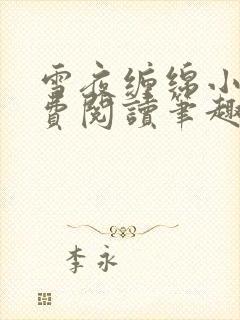 雪夜缠绵小
費閱讀筆趣
李永